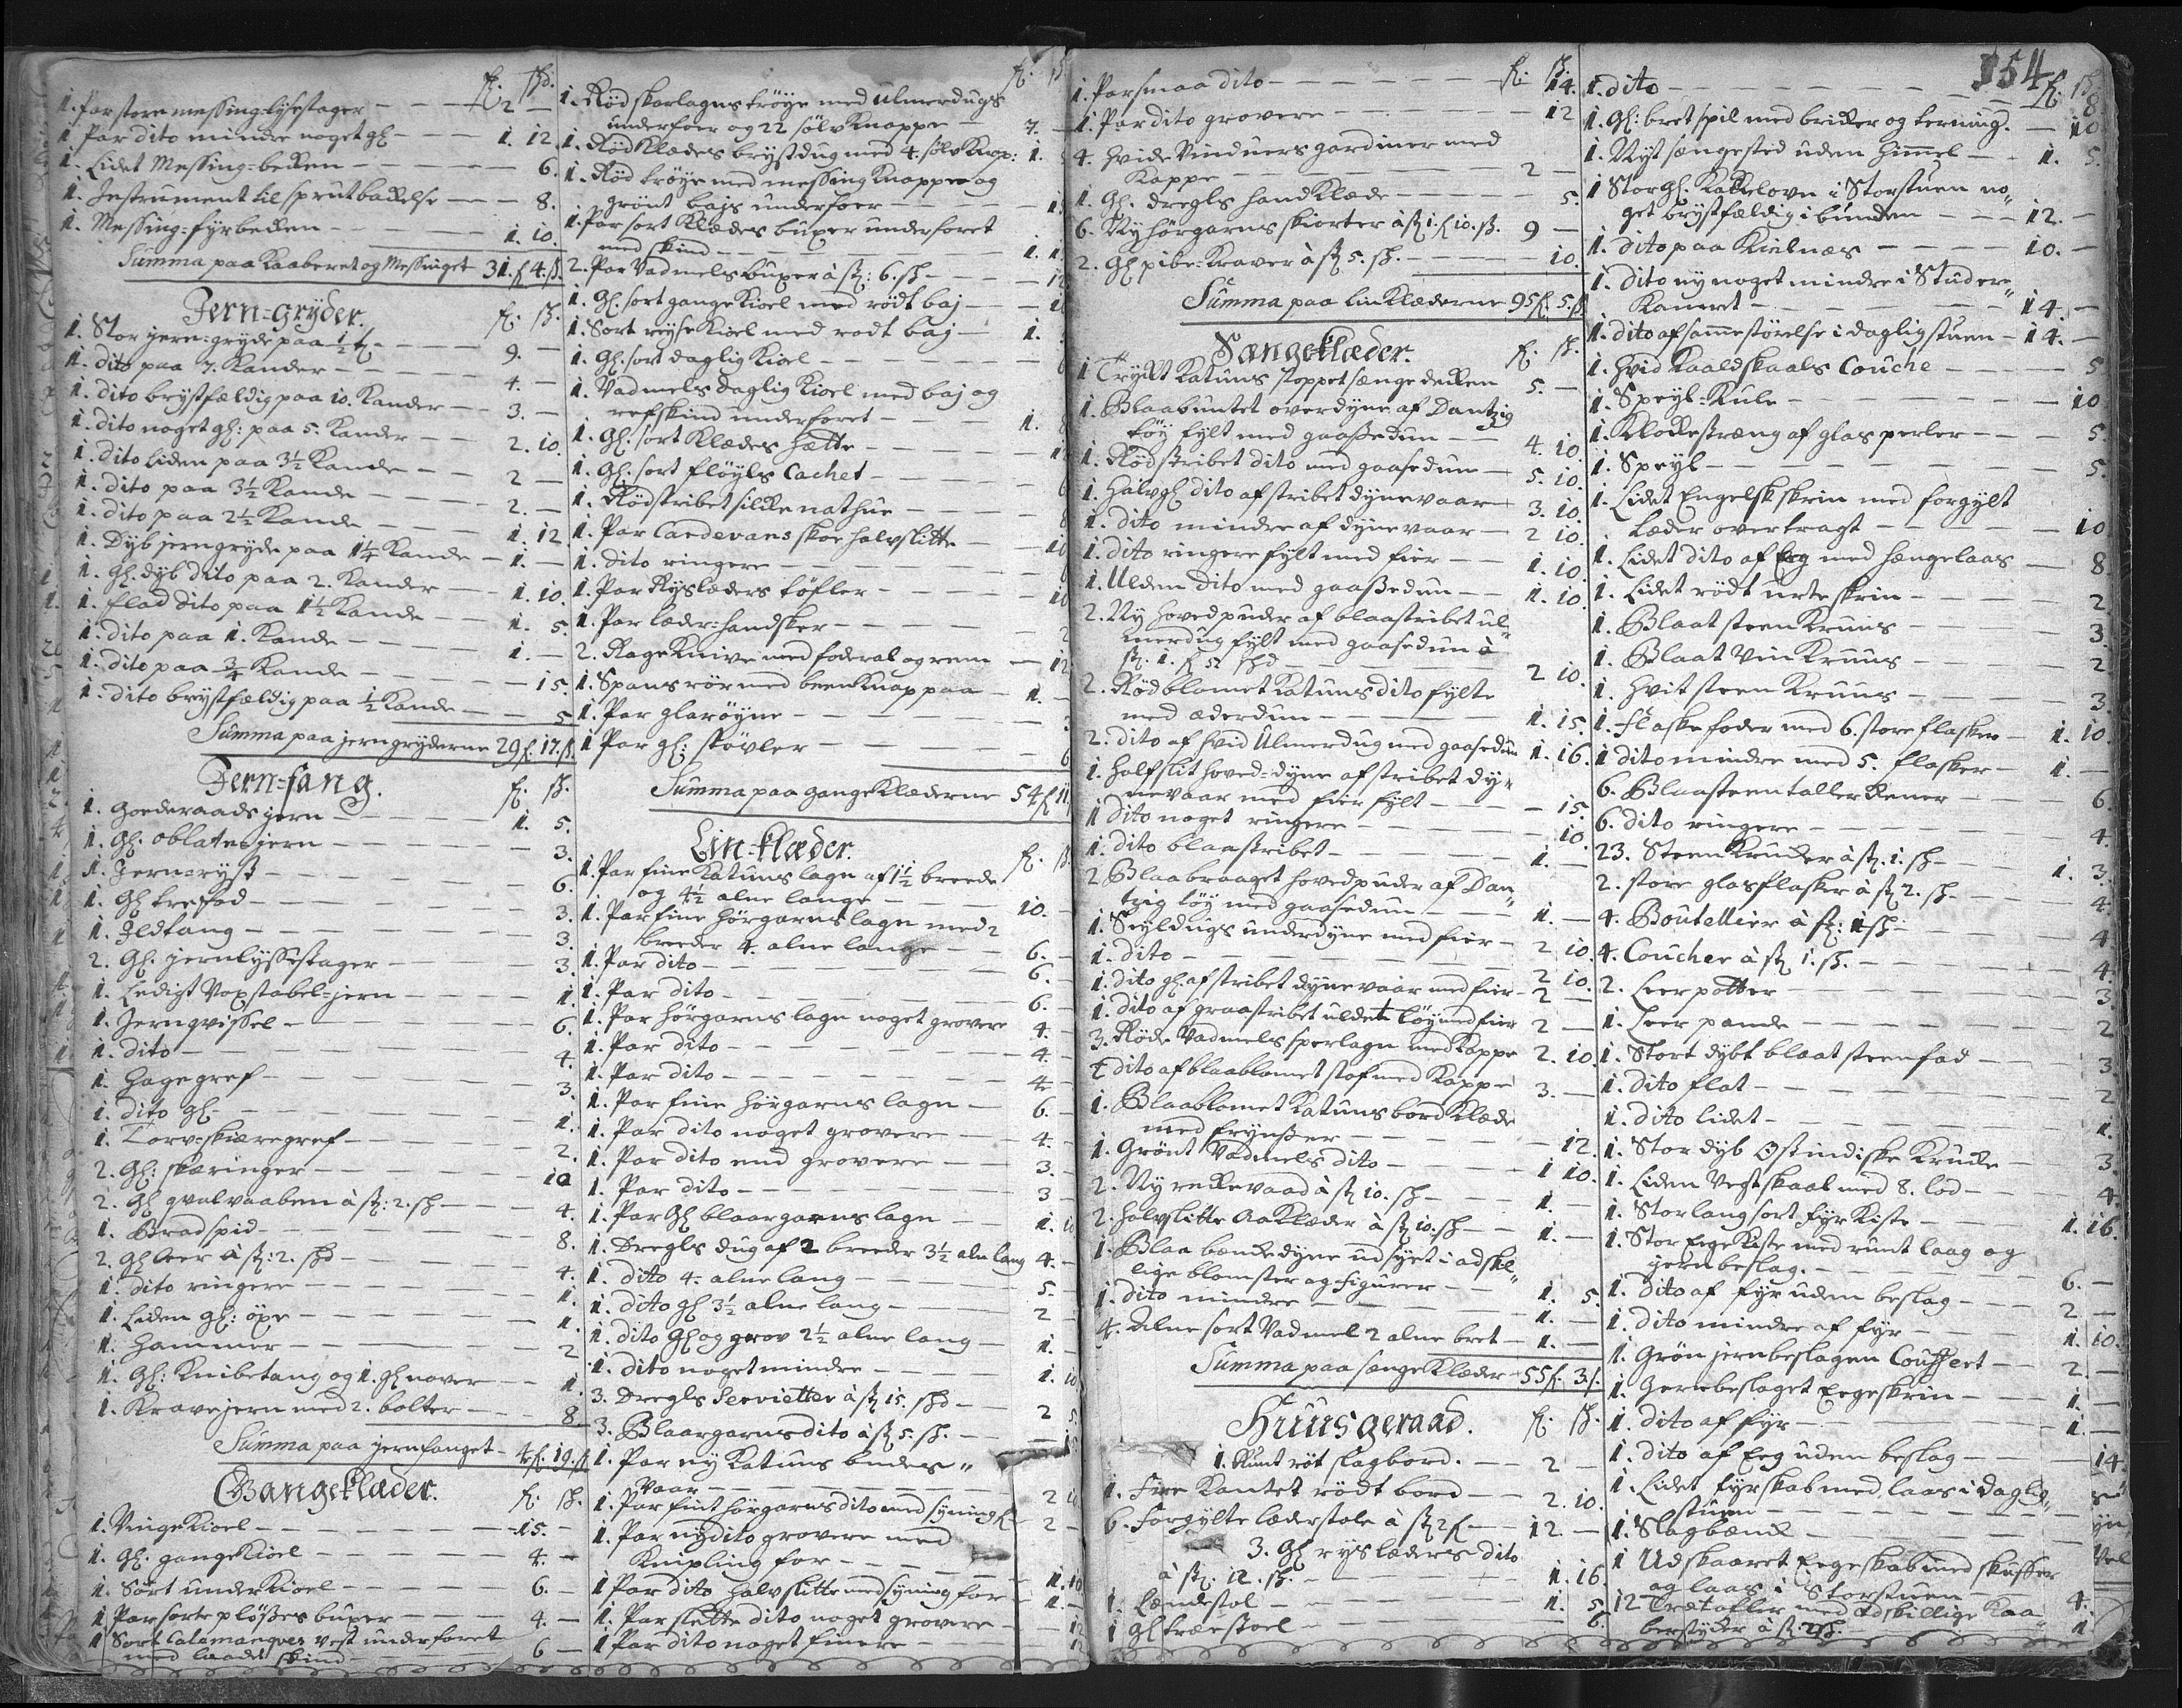 ƒ. ſhd.
1. Par store messing-lysestager — 2 —
1. Par dito mindre noget gl. — 1. 12.
1. Lidet Messing-becken — 6.
1. Instrument til sprutbackelse — 8.
1. Messing-fyrbecken — 1. 10.
Summa paa Kaaberet og Messinget 31. 4.
Jern-gryder.
1. Stor jern-gryde paa ½ — 9. —
1. dito paa 7. Kander — 4. —
1. dito brystfældig paa 10. Kander — 3. —
1. dito noget gl: paa 5. Kander — 2. 10.
1. dito liden paa 3½ Kande — 2 —
1. dito paa 3½ Kande — 2. —
1. dito paa 2½ Kande — 1. 12.
1. Dyb jerngryde paa 1¼ Kande — 1. —
1. gl. dyb dito paa 2. Kander — 1. 10.
1. flad dito paa 1½ Kande — 1. 5.
1. dito paa 1. Kande — 1. —
1. dito paa ¾ Kande — 15.
1. dito brystfældig paa ½ Kande — 5
Summa paa jerngryderne 29. 17.
Jern-fang.
1. Goderaads jern — 1. 5.
1. gl. oblatte-jern — 3.
1. Jernryst — 6.
1. gl trefod — 3.
1. Ildtang — 3.
2. gl. jernlyssestager — 3.
1. Ledigt Voxstabel-jern — 1.
1. Jerngvissel — 6.
1. dito — 4.
1. Hagegref — 3.
1. dito gl. — 1.
1. Torv-skiæregref — 2.
2. gl: skæringer — 10
2. gl hvalvaaben à st: 2. sh — 4.
1. Bradspid — 8.
2. gl leer à st: 2. shd — 4.
1. dito ringere — 1.
1. Liden gl: öxe — 1.
1. Hammer — 2
1. gl: Knibetang og 1. gl naver — 1.
1. Kravejern med 2. bolter — 8
Summa paa jernfanget 4. 19.
Gangeklæder.
1. Vinge Kioel — 15. —
1. gl. gangekioel — 4. —
1. Sort underkioel — 6. —
1 Par sorte plösses buxer — 4. —
1 Sort Calamanques vest underforet
med laadt skind — 6 —
1. Rød skarlagns trøye med Ulmerdugs
underfoer og 22 sölvknappe — 7. —
1. Rød Klædes brystdug med 4. sölvknap: 1.
1. Rød trøye med messing knapper og
grönt bajs underfoer — 1.
1. Par sort Klædes buxer underforet
med skind — 1.
2. Par Vadmels buxer à st: 6. sh — 12
1. gl. sort gange Kioel med rödt baj —
1. Sort reyse Kioel med rödt baj — 1.
1. gl. sort daglig Kioel —
1. Vadmels daglig Kioel med baj og
refskind underforet — 1. 8
1. gl. sort Klædes hætte —
1. gl. sort flöyls Cachet —
1. Rødstribet silke nathue —
1. Par Cardevans skoe halvslitte —
1. dito ringere —
1. Par Ryslæders töfler —
1. Par læder-handsker — 2
2. Rageknive med foderal og reem — 12
1. Spansrör med been knap paa — 1. —
1. Par glarøyne —
1 Par gl: stövler — 6
Summa paa gangeKlæderne 54. 11.
Lin-klæder.
1. Par fine Katuns lagn af 1½ breede
og 4½ alne lange — 10. —
1. Par fine hörgarns lagn med 2
breeder 4. alne lange — 6. —
1. Par dito — 6.
1. Par dito — 6.
1. Par hörgarns lagn noget grovere 4. —
1. Par dito — 4. —
1. Par dito — 4 —
1. Par fine hörgarns lagn — 6. —
1. Par dito noget grovere — 4. —
1. Par dito end grovere — 3. —
1. Par dito — 3 —
1. Par gl blaargarns lagn — 1. 10
1. Dregls dug af 2 breeder 3½ alne lang 4. —
1. dito 4. alne lang — 5. —
1. dito gl 3½ alne lang — 2 —
1. dito gl og grov 2½ alne lang — 1. —
1. dito noget mindre — 1. 10
3. Dregls Servietter à st 15. shd — 2 5.
3. Blaargarns dito à st 5. sh. — 15
1. Par ny Katuns pudes-
vaar — 2 10
1. Par fiint hörgarns dito med syning — 2 —
1. Par ny dito grovere med
Knipling for — 1. 10
1 Par dito halvslitte med syning for — 1. —
1. Par slette dito noget grovere — 12
1 Par dito noget finere — 12
154
1. Par smaa dito — 14.
1. Par dito grovere — 12
4. hvide Vinduers gardiner med
Kappe — 2 —
1. gl. dregls handklæde — 5.
6. Ny hörgarns skiorter à st 1. 10. sh. 9 —
2. gl pibe-Kraver à st 5. sh. — 10.
Summa paa linklæderne 95. 5.
Sængeklæder.
1 Tryckt Katuns stoppet sængedecken 5. —
1. Blaabuntet overdyne af Dantzig
töy fylt med gaassedun — 4. 10.
1. Rødstribet dito med gaasedun — 5. 10.
1. halvgl dito af stribet dynevaar 3. 10.
1. dito mindre af dynevaar — 2 10.
1. dito ringere fylt med fier — 1. 10.
1. Ulden dito med gaassedun — 1. 10.
2. Ny hovedpuder af blaastribet ul-
merdug fylt med gaasedun à
st: 1. 5 shd — 2 10.
2. Rødblomet Katuns dito fylte
med æderdun — 1. 15.
2. dito af hvid Ulmerdug med gaasedun 1. 16.
1. halfslit hoved-dyne af stribet dy-
nevaar med fier fylt — 15.
1 dito noget ringere — 10.
1. dito blaastribet — 1. —
2 Blaabraaget hovedpuder af Dan-
tzig töy med gaasedun — 1. —
1. Seyldugs underdyne med fier — 2 10.
1. dito — 2 10.
1. dito gl. af stribet dynevaar med fier — 2 —
1. dito af graastribet uldent töy med fier 2 —
3. Røde Vadmels sperlagn med Kappe 2. 10.
1 dito af blaablomet stof med Kappe 3. —
1. Blaablomet Katuns bordklæde
med frynsser — 12.
1. Grönt Vadmels dito — 1 10.
2. Ny reckevaad à st 10. sh — 1. —
2. halvslitte Aaklæder à st 10. sh — 1. —
1. Blaa bænkedyne udsyet i adskil-
lige blomster og figurer — 1. 5.
1. dito mindre — 1. —
4. Alne sort Vadmel 2 alne bret — 1. —
Summa paa sængeklæder 55. 3.
Huusgeraad.
1. Rundt rødt slagbord. — 2 —
1. Fire kantet rödt bord — 2. 10.
6. Forgylte læderstole à st 2 — 12. —
3. gl ryslæders dito
à st: 12. sh. — 1. 16.
1. Lændestol — 1. 5
1 gl træestoel — 6.
1. dito — 8
1. gl: bretspil med bricker og terning. — 10
1. Nyt sængested uden himmel — 1. 5.
1 Stor gl. Kakelovn i Storstuen no-
get brystfældig i bunden — 12. —
1. dito paa Kielnæs — 10. —
1. dito ny noget mindre i Studere-
Kamret — 14. —
1. dito af samme störelse i dagligstuen — 14. —
1. hvid Kaaldskaals Couche — 5
1. Speyl-Kule — 10
1. Klockestræng af glas perler — 5.
1. Speyl — 5.
1. Lidet Engelsk skrin med forgylt
læder overtragt — 10
1. Lidet dito af Eeg med hængelaas — 8
1. Lidet rödt urteskrin — 2
1. Blaat steen Kruus — 3.
1. Blaat Vin Kruus — 2
1. Hvit steen Kruus — 3.
1. Flaskefoder med 6. store flasker — 1. 10.
1 dito mindre med 5. flasker — 1. —
6. Blaa steentallerkener — 6.
6. dito ringere — 4.
23. Steen Krucker à st. 1. sh — 1. 3.
2. store glasflasker à st 2. sh. — 4.
4. Boutellier à st: 1 sh — 4
4. Coucher à st 1. sh. — 4.
2. Leerpotter — 3
1. Leer pande — 2
1. Stort dybt blaat steenfad — 3.
1. dito flat — 2
1. dito lidet — 1.
1. Stor dyb Ostindiske Krucke — 3.
1. Liden Vegtskaal med 8. lod — 4.
1. Stor lang sort fyr Kiste — 1. 16.
1. Stor Eege Kiste med rundt laag og
jernbeslag. — 6. —
1. dito af fyr uden beslag — 2 —
1. dito mindre af fyr — 1. 10.
1. Grön jernbeslagen Couffert — 2. —
1. Jernbeslaget Eegeskrin — 1. —
1. dito af fyr — 1. —
1. dito af Eeg uden beslag — 14.
1. Lidet fyrskab med laas i Daglig-
stuen —
1. Slagbænk —
1 Udskaaret Eegeskab med skuffer
og laas i Storstuen — 4.
12 Trætafler med adskillige Kaa-
berstycker à st 2 sh. — 1